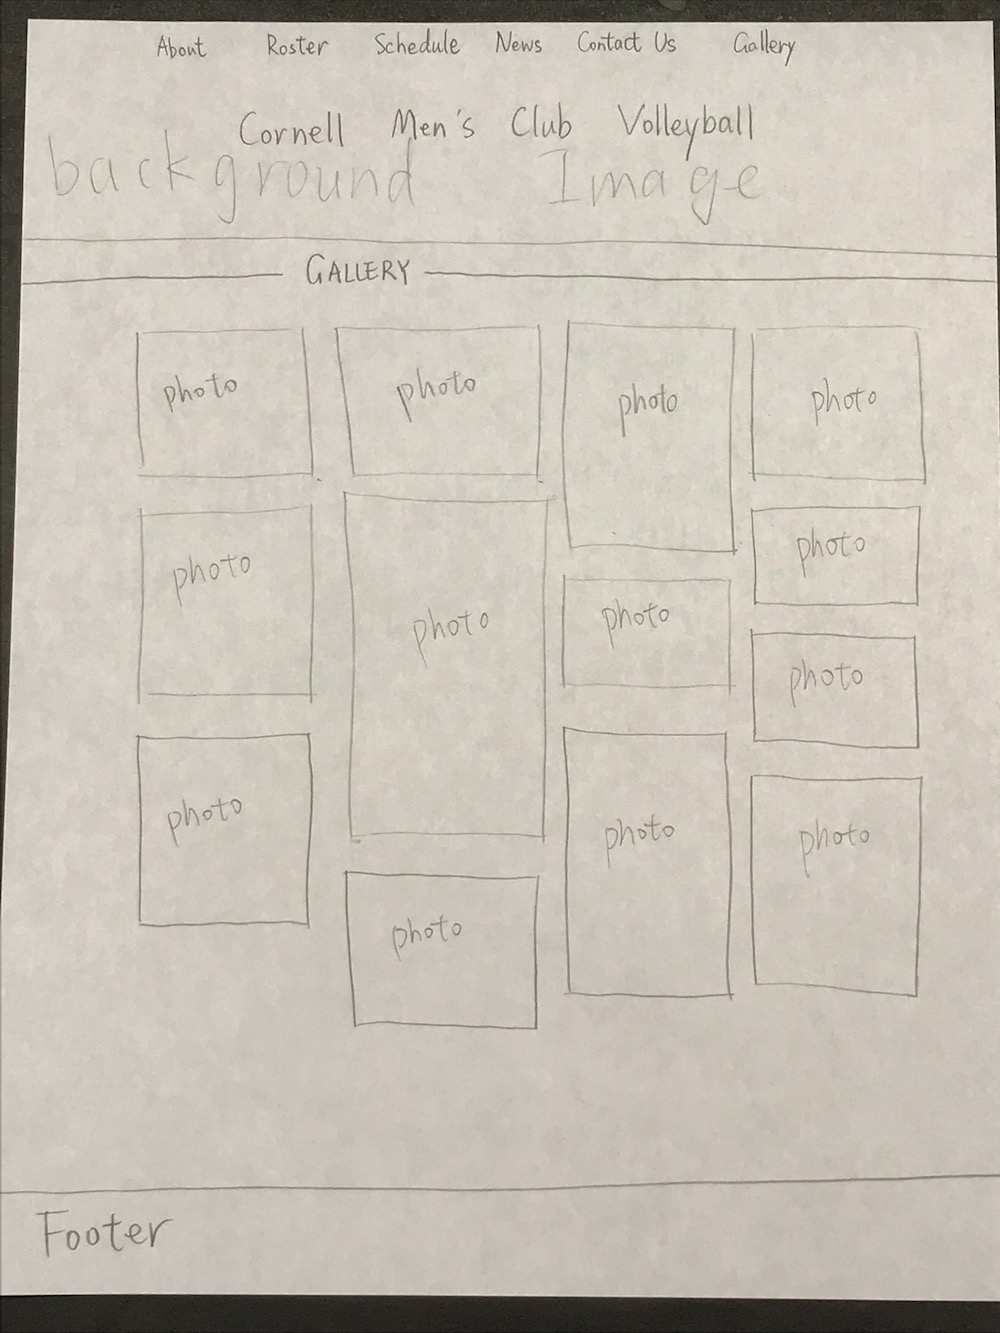 About Roster Schedule News Contact Us Gallery
Cornell Men's Club Volleyball
background Image
GALLERY
photo photo photo photo
photo photo photo photo
photo
photo photo photo
photo
Footer